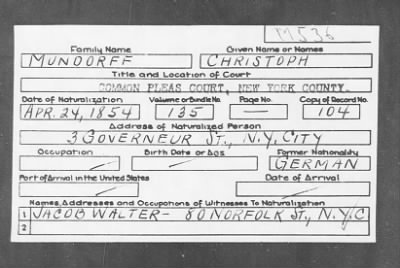 M536
Family Name Given Name or Names
MUNDORFF CHRISTOPH
Title and Location of Court
COMMON PLEAS COURT, NEW YORK COUNTY.
Date of Naturalization Volume or Bundle No. Page No. Copy of Record No.
APR. 24, 1854 135 — 104
Address of Naturalized Person
3 GOVERNEUR ST., N.Y. CITY
Occupation Birth Date or Age Former Nationality
GERMAN
Port of Arrival in the United States Date of Arrival
Names, Addresses and Occupations of Witnesses To Naturalization
1 JACOB WALTER - 80 NORFOLK ST., N.Y.C
2